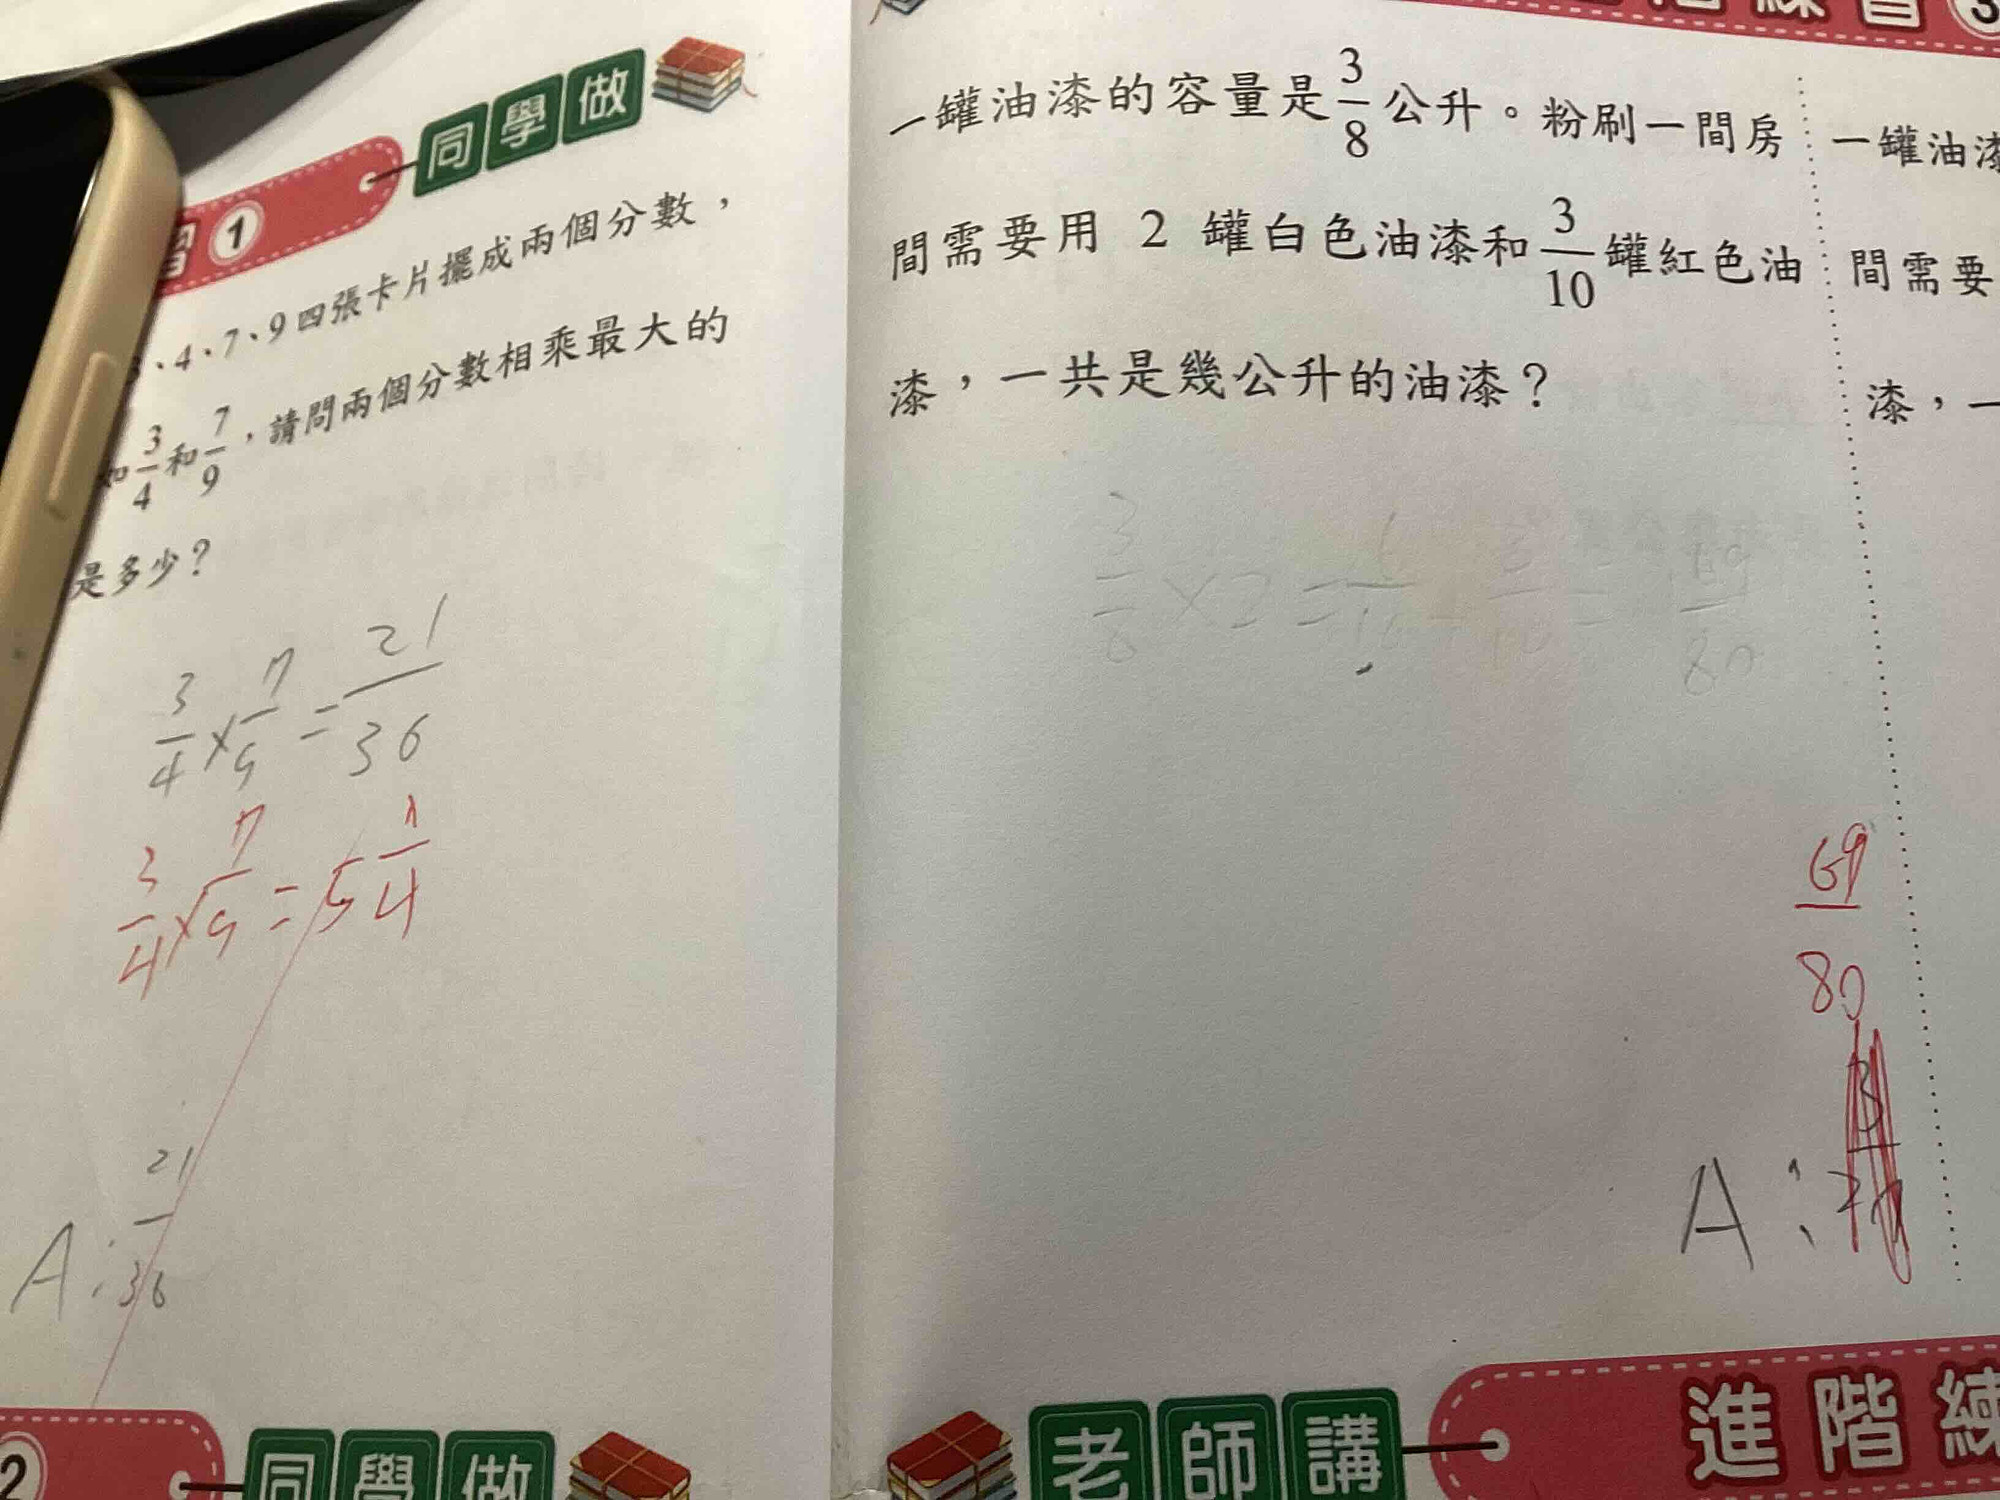 習 1 同學做
3、4、7、9四張卡片擺成兩個分數，
如 3/4 和 7/9，請問兩個分數相乘最大的
是多少？
3/4 × 7/9 = 21/36
3/4 × 7/9 = 5 1/4
A: 21/36
2 同學做
習 3
一罐油漆的容量是 3/8 公升。粉刷一間房
間需要用 2 罐白色油漆和 3/10 罐紅色油
漆，一共是幾公升的油漆？
69/80
A:
老師講 進階練
一罐油漆
間需要
漆，一